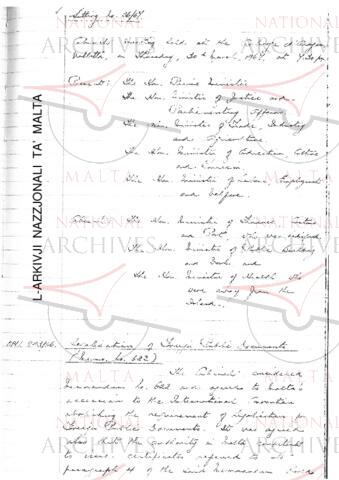 Sitting No. 26/67
Cabinet Meeting held at the Auberge d'Aragon
Valletta, on Thursday, 30th March, 1967, at 9.30 pm
Present: The Hon. Prime Minister
The Hon. Minister of Justice and
Parliamentary Affairs
The Hon. Minister of Trade, Industry
and Agriculture
The Hon. Minister of Education, Culture
and Tourism
The Hon. Minister of Labour, Employment
and Welfare
Absent: The Hon. Minister of Finance, Customs
and Port who was indisposed
The Hon. Minister of Public Building
and Works and
The Hon. Minister of Health who
were away from the
Island.
Legalisation of Foreign Public Documents
(Memo. No. 622)
The Cabinet considered
Memorandum No. 622 and agreed to Malta's
accession to the International Convention
abolishing the requirement of legalisation for
Foreign Public Documents. It was agreed
also that the authority in Malta competent
to issue certificates referred to in
paragraph 4 of the said Memorandum should
L-ARKIVJI NAZZJONALI TA' MALTA
NATIONAL
ARCHIVES
MALTA